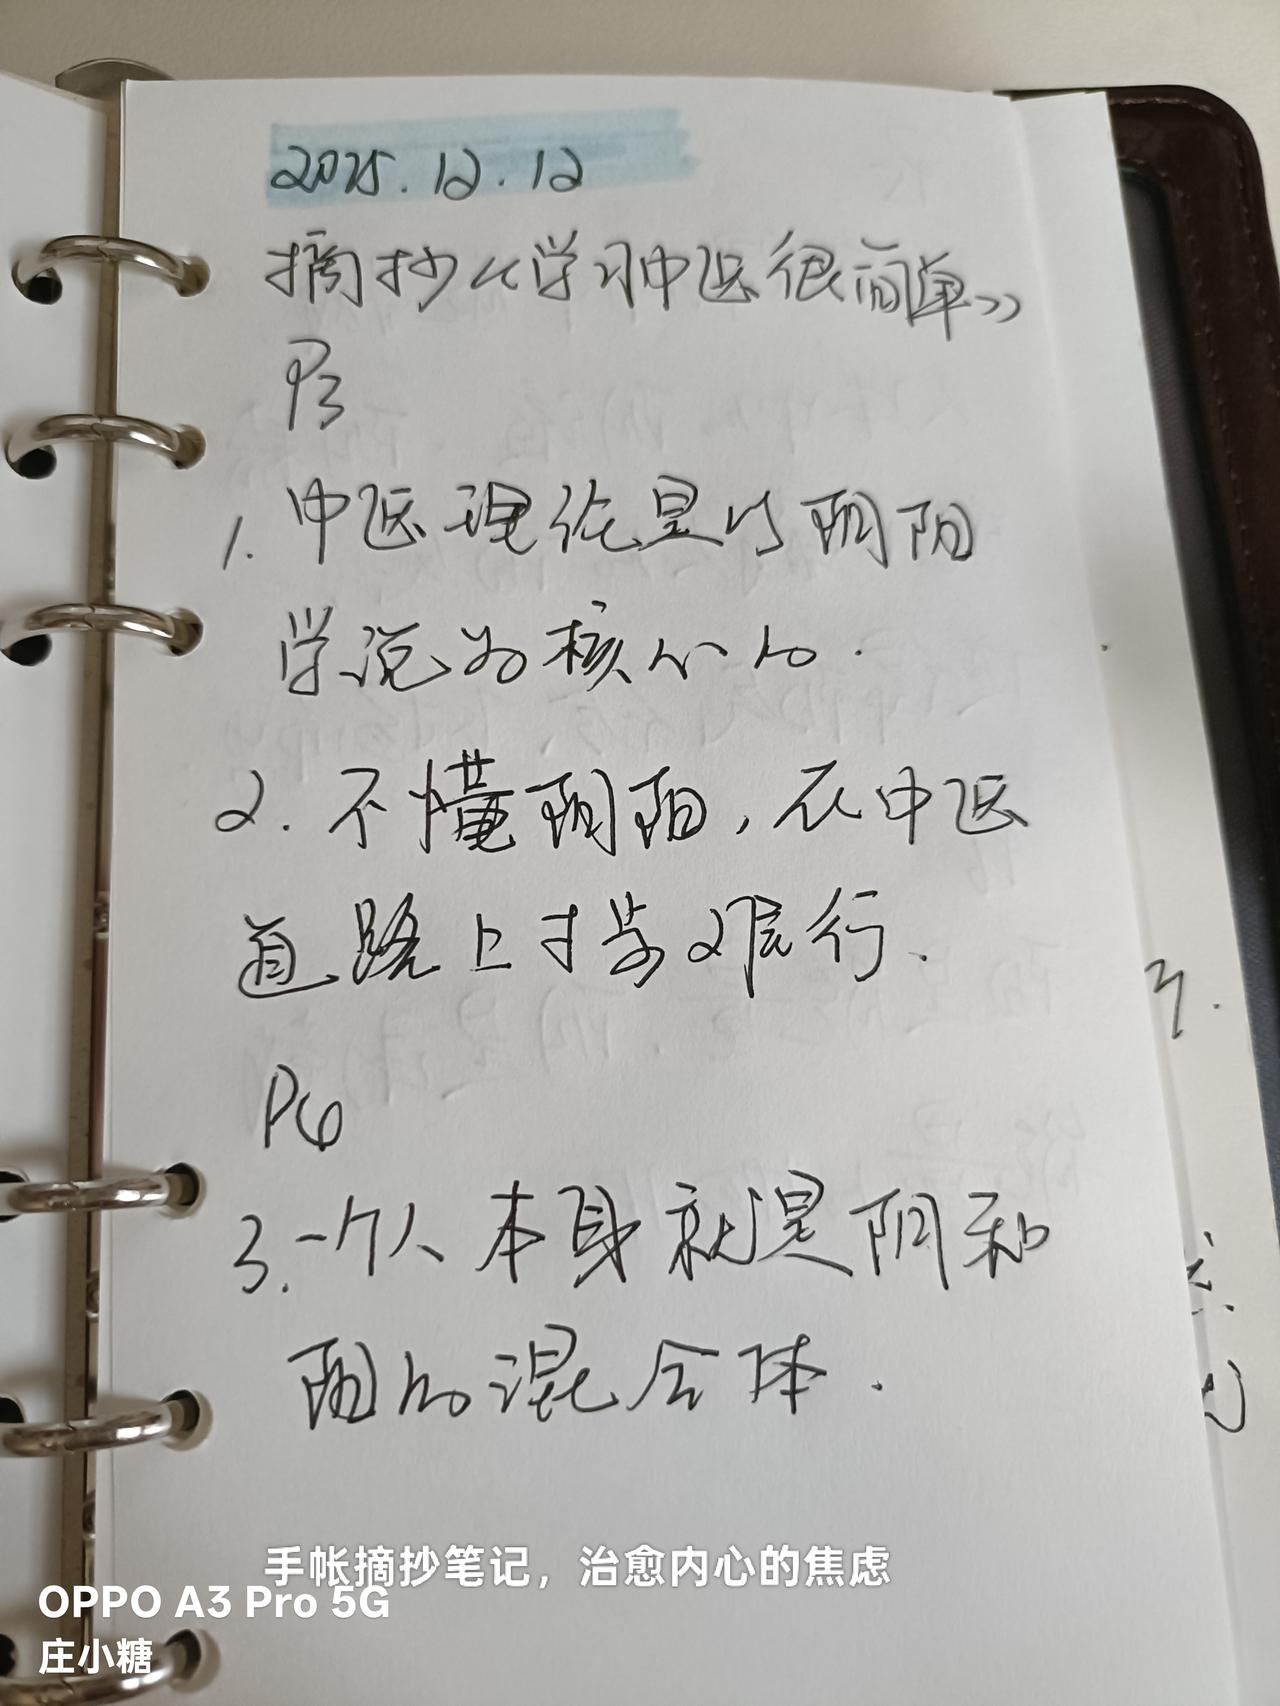 2025.12.12
摘抄《学习中医很简单》
P3
1. 中医理论是以阴阳
学说为核心的.
2. 不懂阴阳, 在中医
道路上寸步难行.
P6
3. 一个人本身就是阴和
阳的混合体.
手帐摘抄笔记，治愈内心的焦虑
OPPO A3 Pro 5G
庄小糖